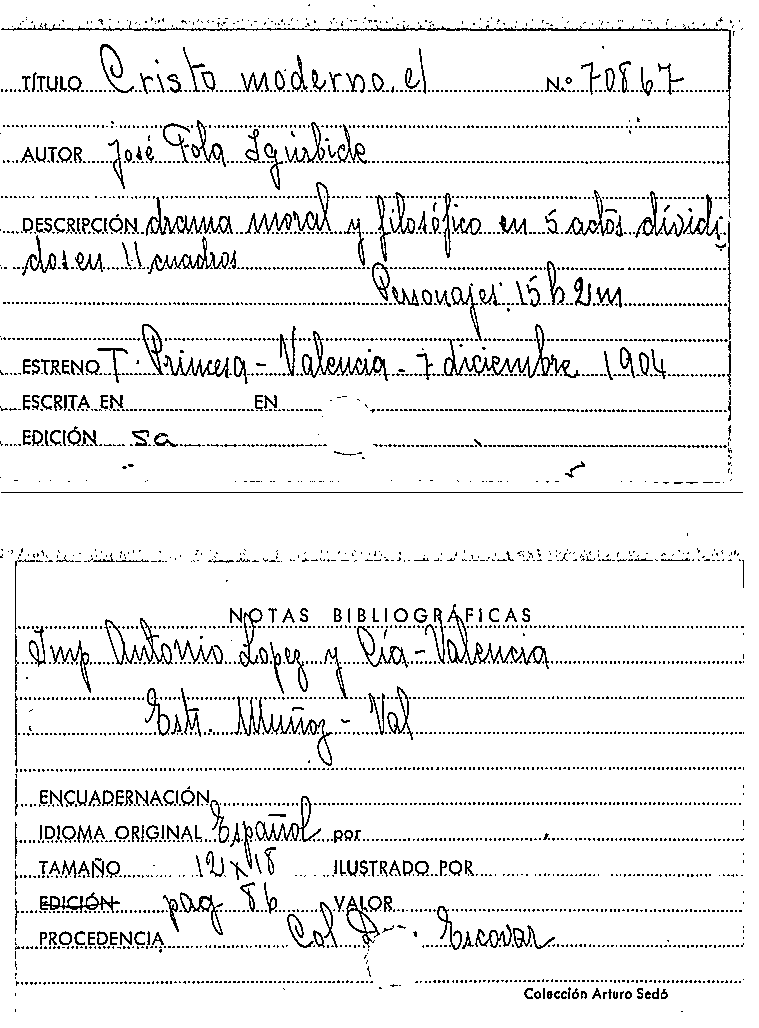 TÍTULO Cristo moderno, el N.º 70867
AUTOR José Fola Igúrbide
DESCRIPCIÓN drama moral y filosófico en 5 actos dividi-
dos en 11 cuadros
Personajes: 15 h 2 m
ESTRENO T. Princesa - Valencia - 7 diciembre 1904
ESCRITA EN EN
EDICIÓN sa
NOTAS BIBLIOGRÁFICAS
Imp Antonio Lopez y Cía - Valencia
Estr. Muñoz - Val
ENCUADERNACIÓN
IDIOMA ORIGINAL Español por
TAMAÑO 12 x 18 ILUSTRADO POR
EDICIÓN pag 86 VALOR
PROCEDENCIA Col Escovar
Colección Arturo Sedó